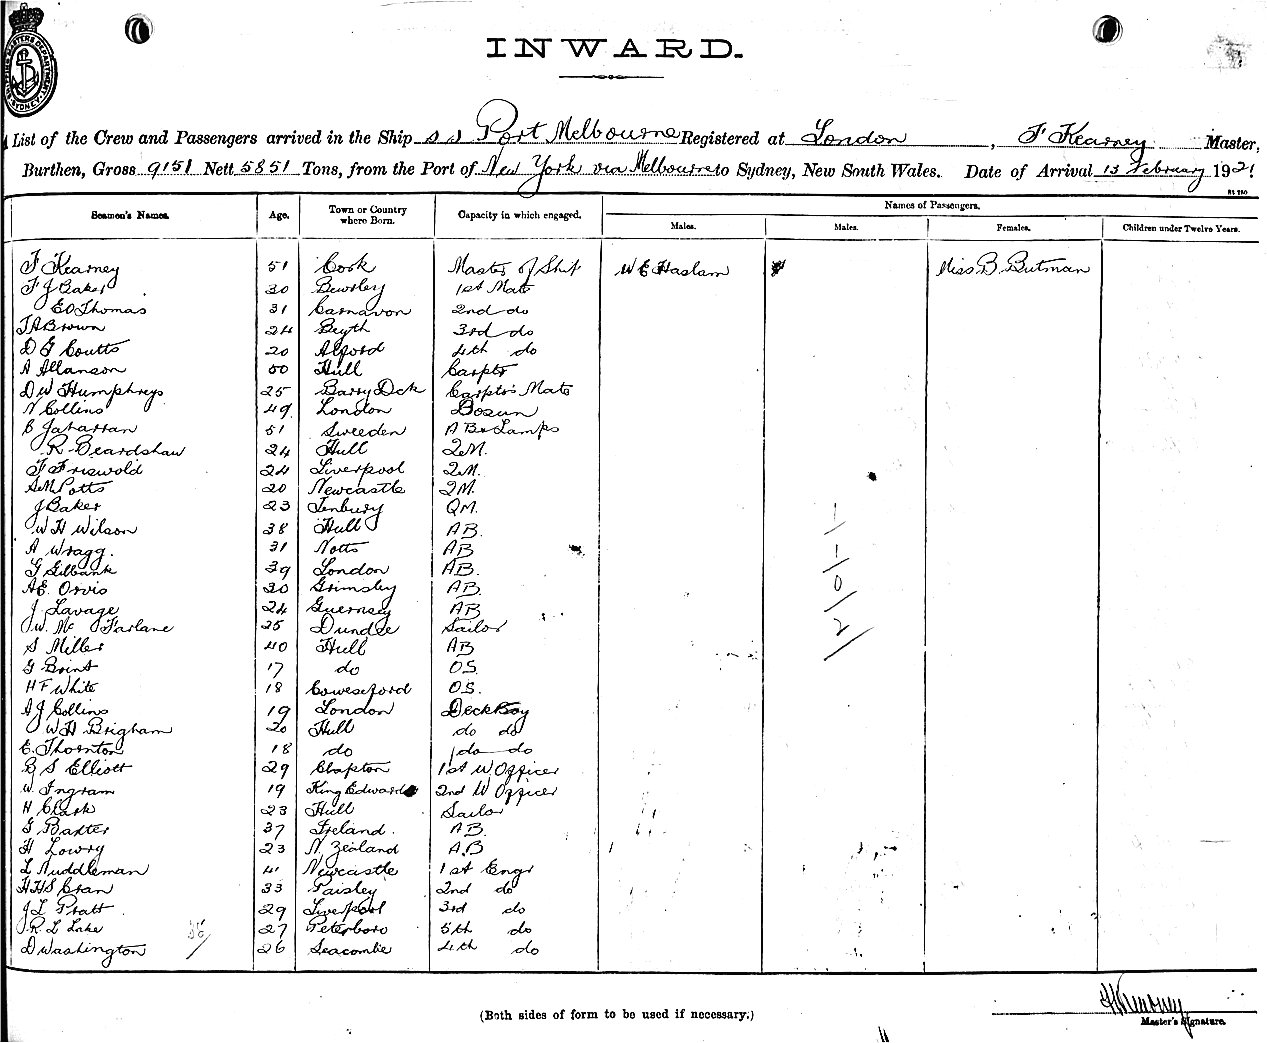 SHIPPING MASTERS DEPARTMENT SYDNEY
INWARD.
List of the Crew and Passengers arrived in the Ship s s Port Melbourne Registered at London, F Kearney Master,
Burthen, Gross 9151 Nett 5851 Tons, from the Port of New York via Melbourne to Sydney, New South Wales. Date of Arrival 13 February 1921
Seamen's Names. Age. Town or Country where Born. Capacity in which engaged. Names of Passengers.
Males. Males. Females. Children under Twelve Years.
F Kearney 51 Cork Master of Ship W E Haslam Miss B. Butman
F J Baker 30 Bewdley 1st Mate
E O Thomas 31 Carnavon 2nd do
J A Brown 24 Blyth 3rd do
D G Coutts 20 Alford 4th do
A Allanson 50 Hull Carptr
D W Humphreys 25 Barry Dck Carptr's Mate
N Collins 49 London Bosun
51 Sweeden A B & Lamps
R Beardshaw 24 Hull Q.M.
F Friswold 24 Liverpool Q.M.
A M Potts 20 Newcastle QM.
J Baker 23 Tenbury QM.
W H Wilson 38 Hull AB.
A Wragg. 31 Notts AB
G Gilbank 39 London AB.
A E Orvis 30 Grimsby AB.
J Lavage 24 Guernsey AB
W. Mc Farlane 25 Dundee Sailor
S Miller 40 Hull AB
G Brint 17 do O.S.
H F White 18 O.S.
A J Collins 19 London Deck Boy
W H Brigham 20 Hull do do
E. Thornton 18 do do do
B S Elliott 29 Clapton 1st W Officer
W. Ingram 19 King Edward 2nd W Officer
H Clark 23 Hull Sailor
G Baxter 37 Ireland. AB.
H Lowry 23 N. Zealand A.B
L Nuddleman 41 Newcastle 1st Engr
H H S Cran 33 Paisley 2nd do
J L Pratt 29 Liverpool 3rd do
R L Lake 27 Peterboro 5th do
D Washington 26 Seacombe 4th do
1
1
0
2
(Both sides of form to be used if necessary.)
F Kearney
Master's Signature.